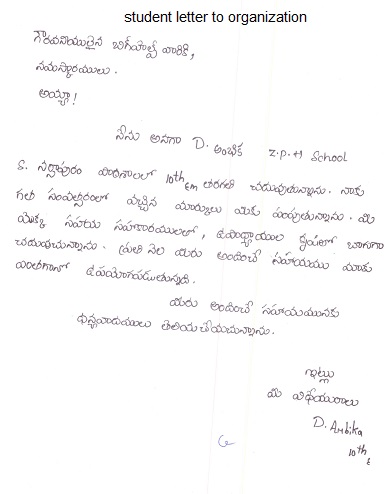 student letter to organization
గౌరవనీయులైన బిగ్‌హెల్ప్ వారికి,
నమస్కారములు.
అయ్యా!
నేను అనగా D. అంబిక z.p.H School
K. నర్సాపురం పాఠశాలలో 10th Em తరగతి చదువుతున్నాను. నాకు
గత సంవత్సరంలో వచ్చిన మార్కులు మీకు పంపుతున్నాను. మీ
యొక్క సహాయ సహకారములలో, ఉపాధ్యాయుల కృషిలో బాగుగా
చదువుచున్నాను. ప్రతి నెల మీరు అందించే సహాయము మాకు
ఎంతగానో ఉపయోగపడుతున్నది.
మీరు అందించే సహాయమునకు
ధన్యవాదములు తెలియచేయుచున్నాను.
ఇట్లు
మీ విధేయురాలు
D. Ambika
10th